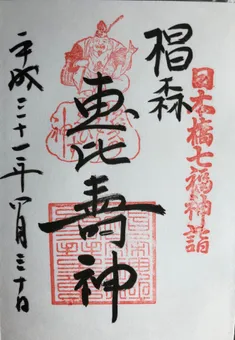 日本橋七福神詣
椙森
恵比寿神
平成三十一年四月三十日